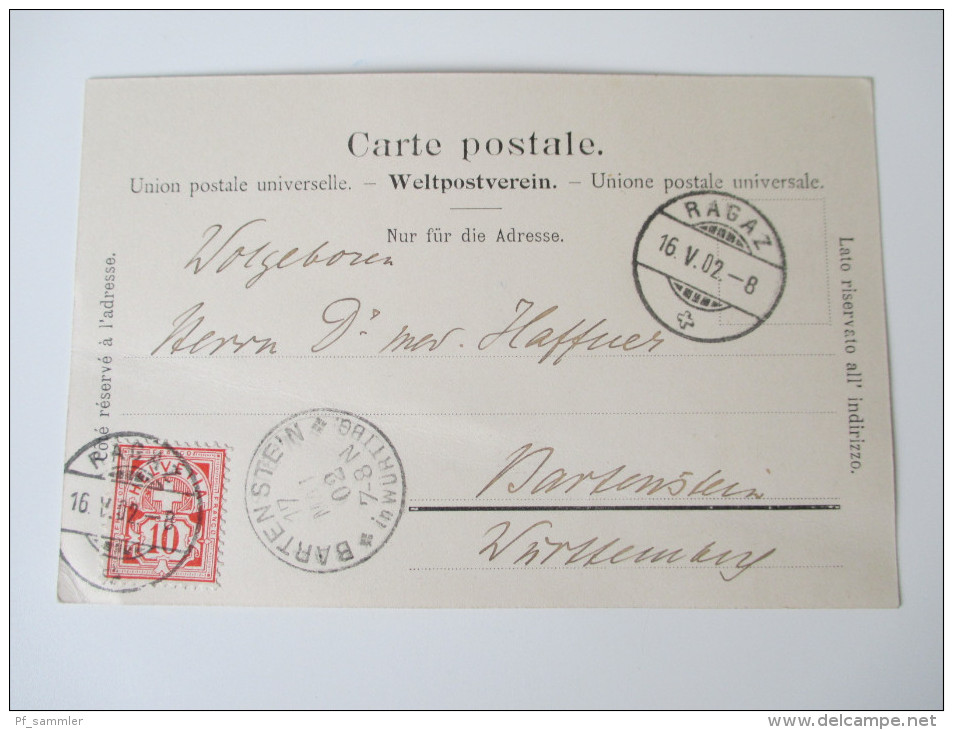 Carte postale.
Union postale universelle. – Weltpostverein. – Unione postale universale.
Nur für die Adresse.
Côté réservé à l'adresse.
Lato riservato all' indirizzo.
RAGAZ
16.V.02.–8
Wolgeboren
Herrn Dr med. Haffner
Bartenstein
Württemberg
BARTENSTEIN
(WÜRTTBG.)
17
MAI
02
7-8 N
RAGAZ
16.V.02.–8
HELVETIA
FRANCO
10
Pf_sammler
www.delcampe.net